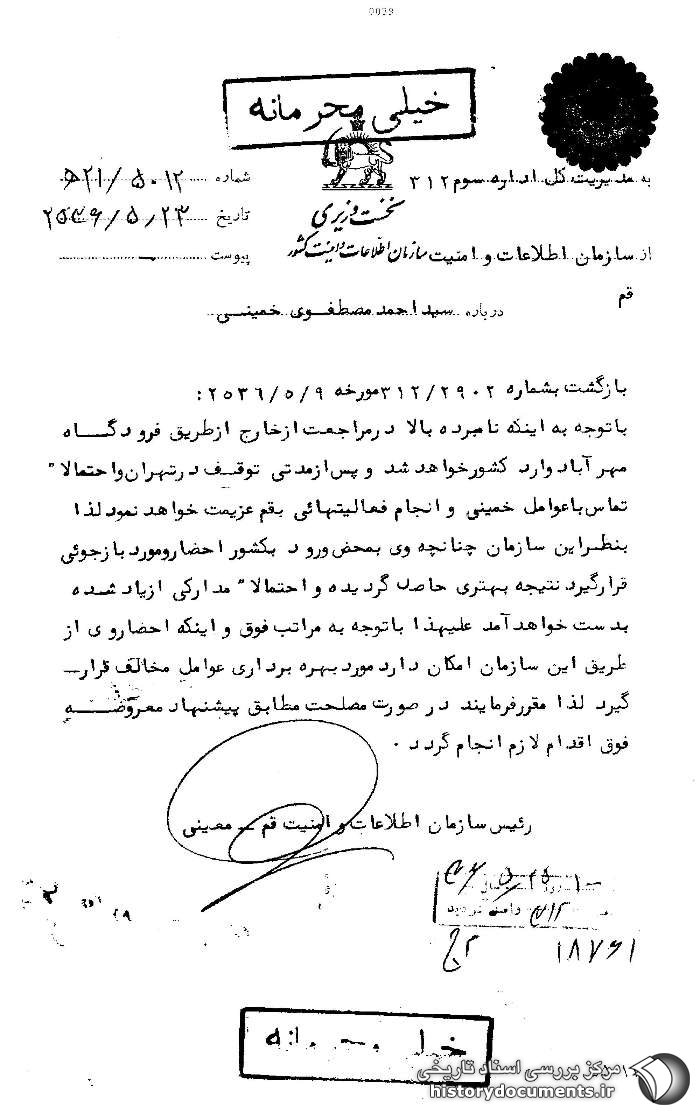 0039
خیلی محرمانه
به مدیریت کل اداره سوم ۳۱۲
شماره ۵۰۱۲/ه۲۱
نخست وزیری
تاریخ ۲۵۳۶/۵/۲۳
از سازمان اطلاعات و امنیت سازمان اطلاعات و امنیت کشور
پیوست
قم
درباره سید احمد مصطفوی خمینی
بازگشت بشماره ۳۱۲/۲۹۰۲ مورخه ۲۵۳۶/۵/۹:
باتوجه به اینکه نامبرده بالا درمراجعت ازخارج ازطریق فرودگاه
مهرآباد وارد کشورخواهد شد و پس ازمدتی توقف درتهران واحتمالا"
تماس باعوامل خمینی و انجام فعالیتهائی بقم عزیمت خواهد نمود لذا
بنظراین سازمان چنانچه وی بمحض ورود بکشور احضارومورد بازجوئی
قرارگیرد نتیجه بهتری حاصل گردیده و احتمالا" مدارکی ازیاد شده
بدست خواهد آمد علیهذا باتوجه به مراتب فوق و اینکه احضار وی از
طریق این سازمان امکان دارد مورد بهره برداری عوامل مخالف قرار
گیرد لذا مقررفرمایند در صورت مصلحت مطابق پیشنهاد معروضه
فوق اقدام لازم انجام گردد .
رئیس سازمان اطلاعات و امنیت قم ـ معینی
واصل گردید
۱۸۷۶۱
خیلی محرمانه
مرکز بررسی اسناد تاریخی
historydocuments.ir